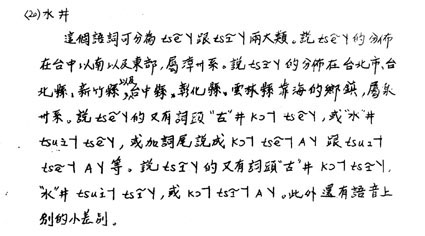 (20) 水井
這個語詞可分為 tsẽ ˥˧ 跟 tsĩ ˥˧ 兩大類。說 tsẽ ˥˧ 的分佈
在台中以南以及東部,屬漳州系。說 tsĩ ˥˧ 的分佈在台北市、台
北縣、新竹縣以及台中縣、彰化縣、雲林縣靠海的鄉鎮,屬泉
州系。說 tsẽ ˥˧ 的又有詞頭“古”井 kɔ ˥ tsẽ ˥˧,或“水”井
tsui ˥ tsẽ ˥˧,或加詞尾說成 kɔ ˥ tsẽ ˥ A ˥˧ 跟 tsui ˥
tsẽ ˥ A ˥˧ 等。說 tsĩ ˥˧ 的又有詞頭“古”井 kɔ ˥ tsĩ ˥˧,
“水”井 tsui ˥ tsĩ ˥˧,或 kɔ ˥ tsĩ ˥ A ˥˧。此外還有語音上
別的小差別。